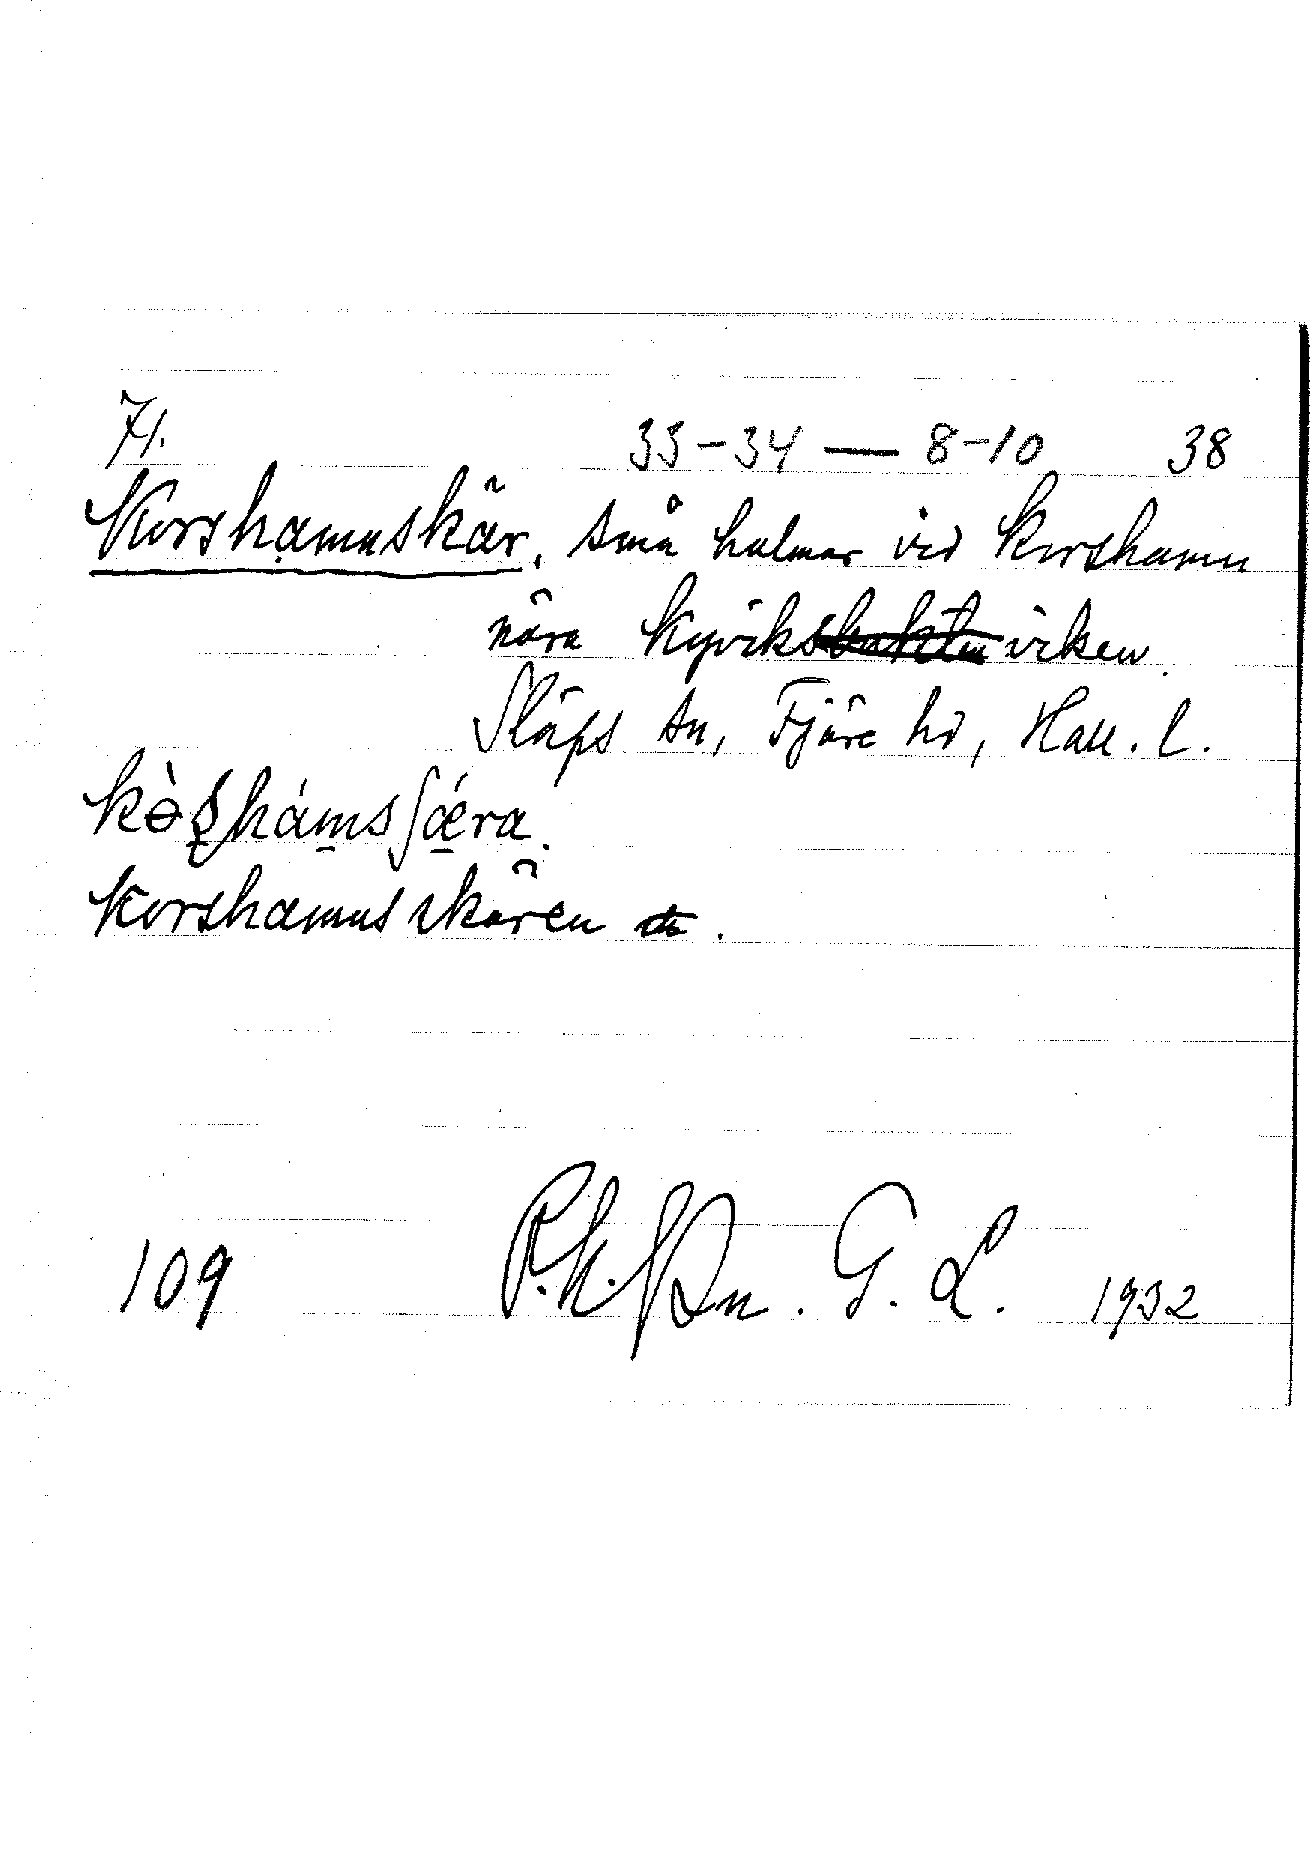 71. 33-34 — 8-10 38
Korshamnskär, små holmar vid Korshamn
nära Kyviksbukten viken
Släps sn, Fjäre hd, Hall. l.
kòʂhámsʃǽra.
Korshamnsskären
109 G. L. 1932